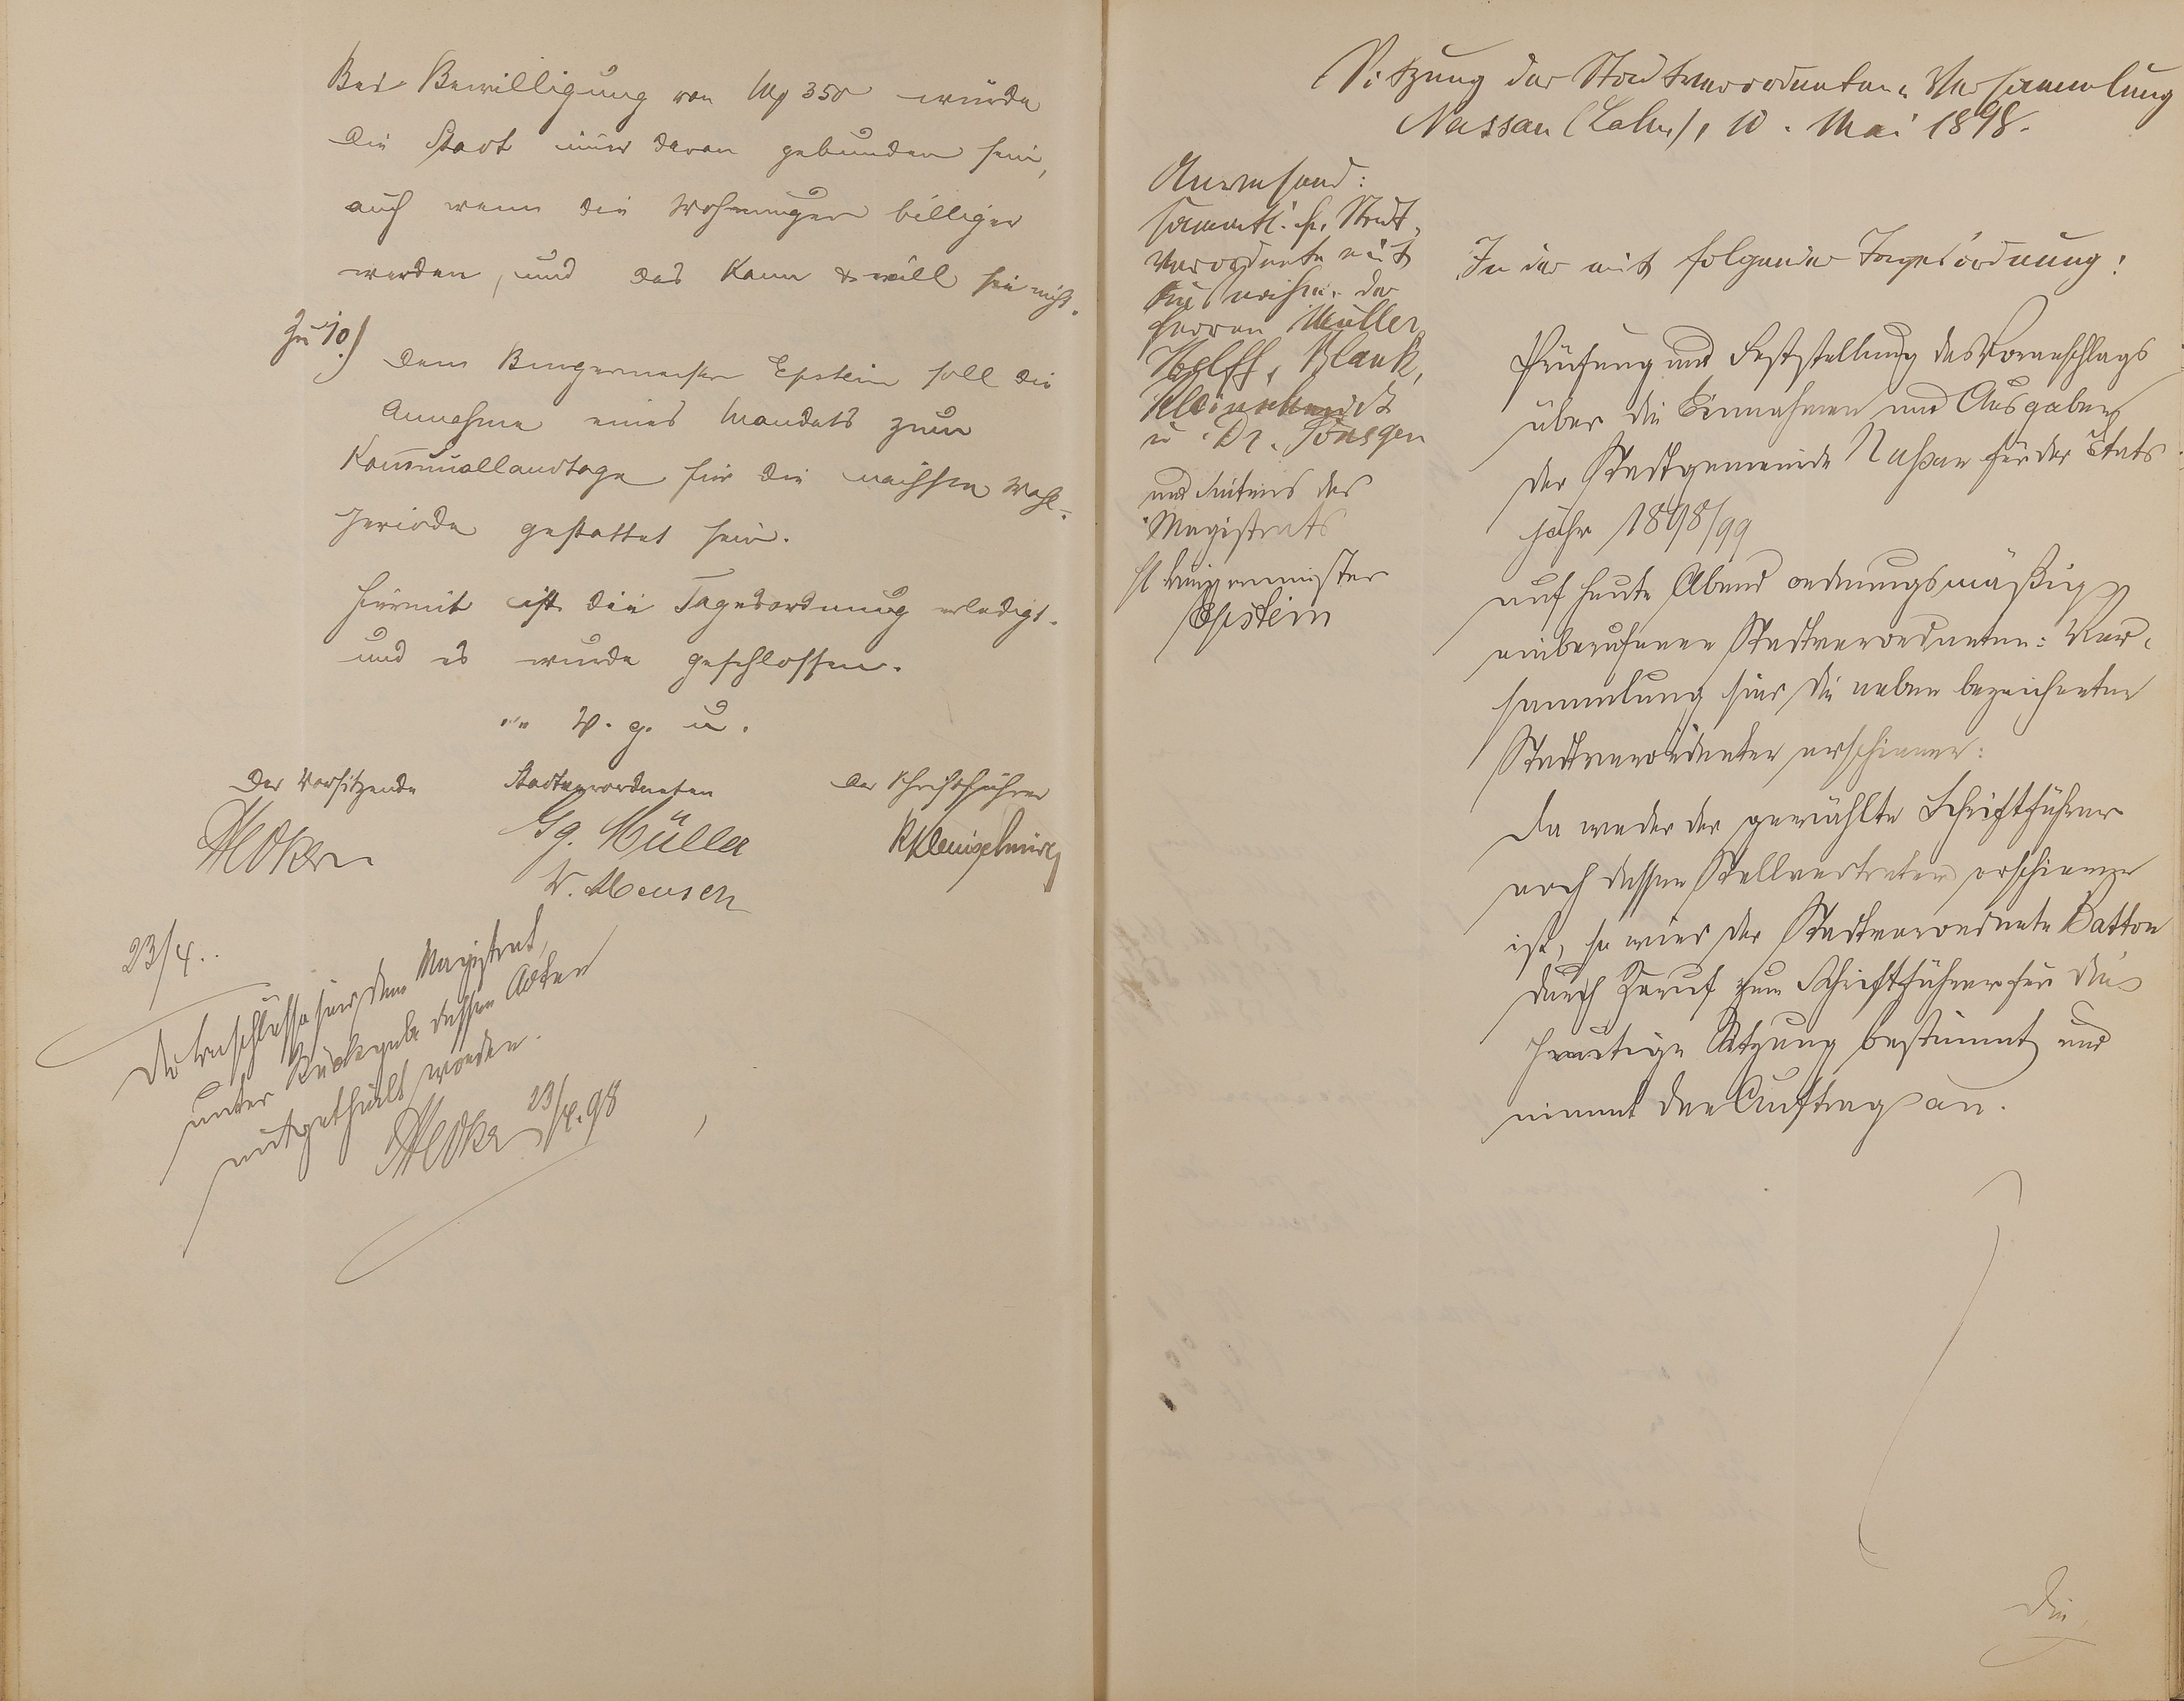 Bei Bewilligung von Mg 350 würde
die Stadt immer daran gebunden sein,
auch wenn die Wohnungen billiger
werden, und das kann & will sie nicht.
Zu 10.)
Dem Burgermeister Epstein soll die
Annahme eines Mandats zum
Kommunallandtage für die nächste Wahl-
periode gestattet sein.
Hiermit ist die Tagesordnung erledigt.
und es wurde geschlossen.
v. g. u.
Der Vorsitzende Stadtverordneten Der Schriftführer
Gg. Müller
23/4.
Die Beschlüsse sind dem Magistrat,
unter Rückgabe dessen Acten
mitgetheilt worden.
23/4.98
Sitzung der Stadtverordneten-Versammlung
Nassau (Lahn), 10. Mai 1898.
Anwesend:
sämmtl. H. Stadt-
verordnete mit
Ausnahme der
Herren Müller,
Helff, Blank,
Kleinschmidt
u. Dr. Pönsgen
und Seitens des
Magistrats
H Bürgermeister
Epstein
In der mit folgender Tagesordnung:
Prüfung und Feststellung des Voranschlags
über die Einnahmen und Ausgaben
der Stadtgemeinde Naßau für das Etats-
jahr 1898/99
auf heute Abend ordnungsmäßig
einberufenen Stadtverordneten-Ver-
sammlung sind die neben bezeichneten
Stadtverordneten erschienen:
Da weder der gewählte Schriftführer
noch dessen Stellvertreter erschienen
ist, so wird der Stadtverordnete Batton
durch Zuruf zum Schriftführer für die
heutige Sitzung bestimmt und
nimmt den Auftrag an.
Die